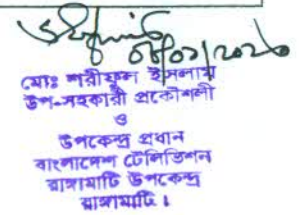 ০৮/০১/২০২৬
মোঃ শরীফুল ইসলাম
উপ-সহকারী প্রকৌশলী
ও
উপকেন্দ্র প্রধান
বাংলাদেশ টেলিভিশন
রাঙ্গামাটি উপকেন্দ্র
রাঙ্গামাটি।